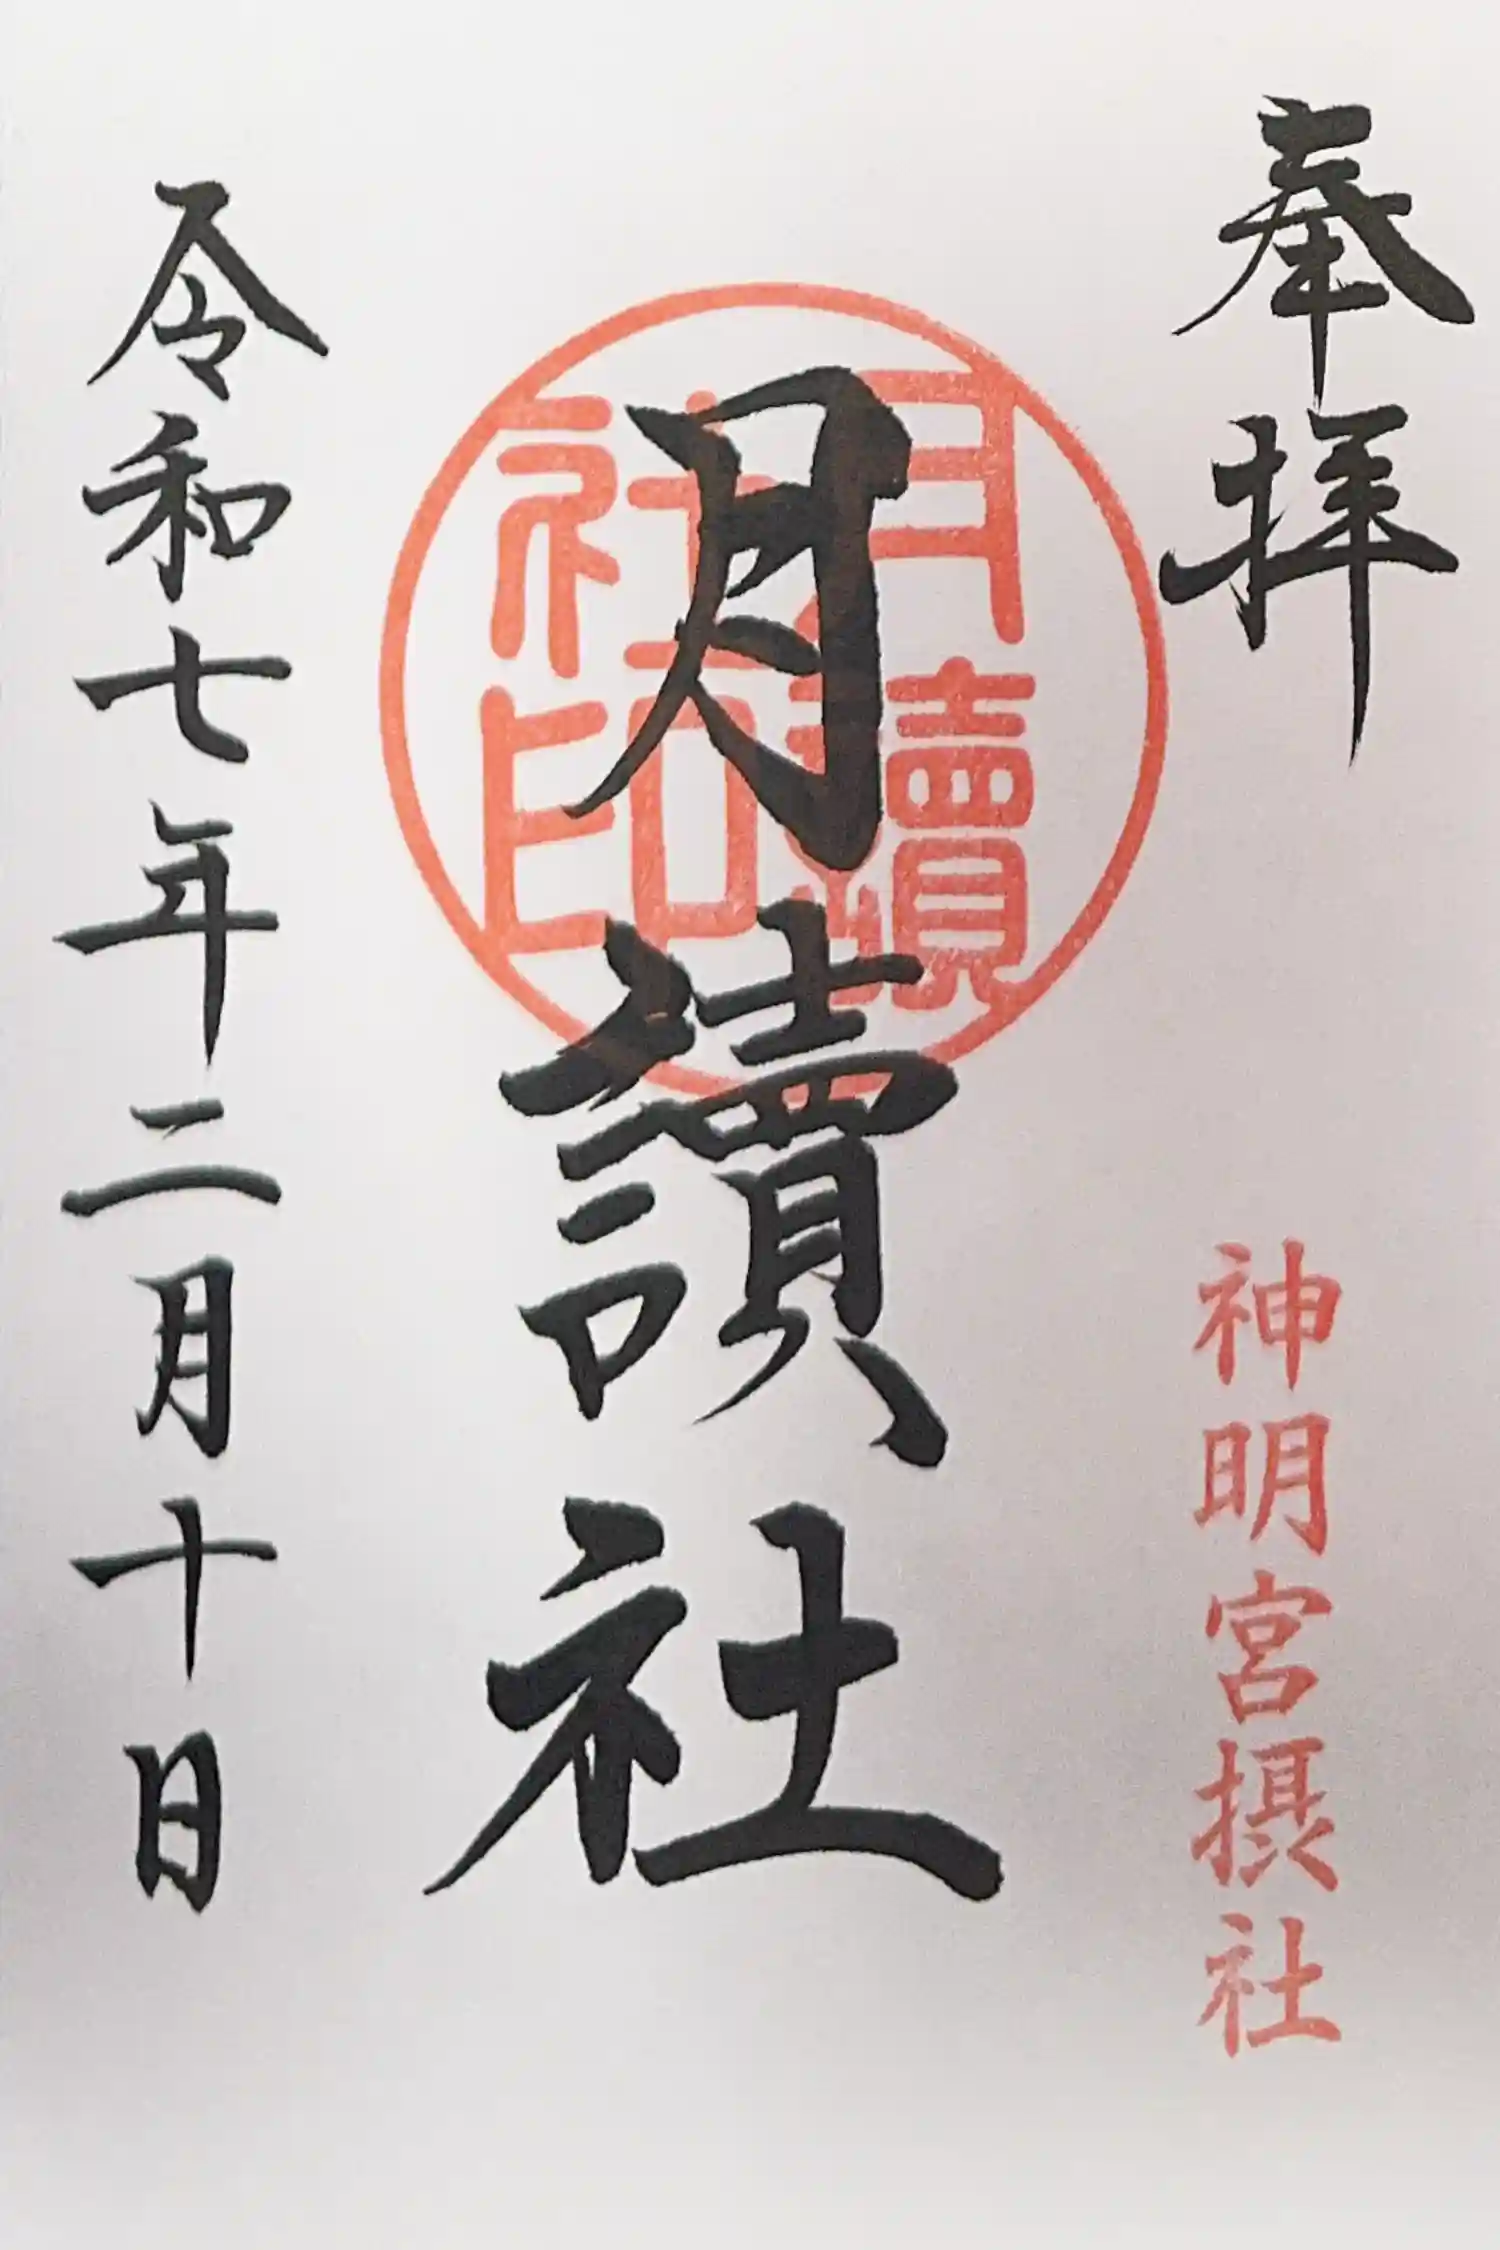 奉拝
神明宮摂社
月讀社
月讀
社印
令和七年二月十日